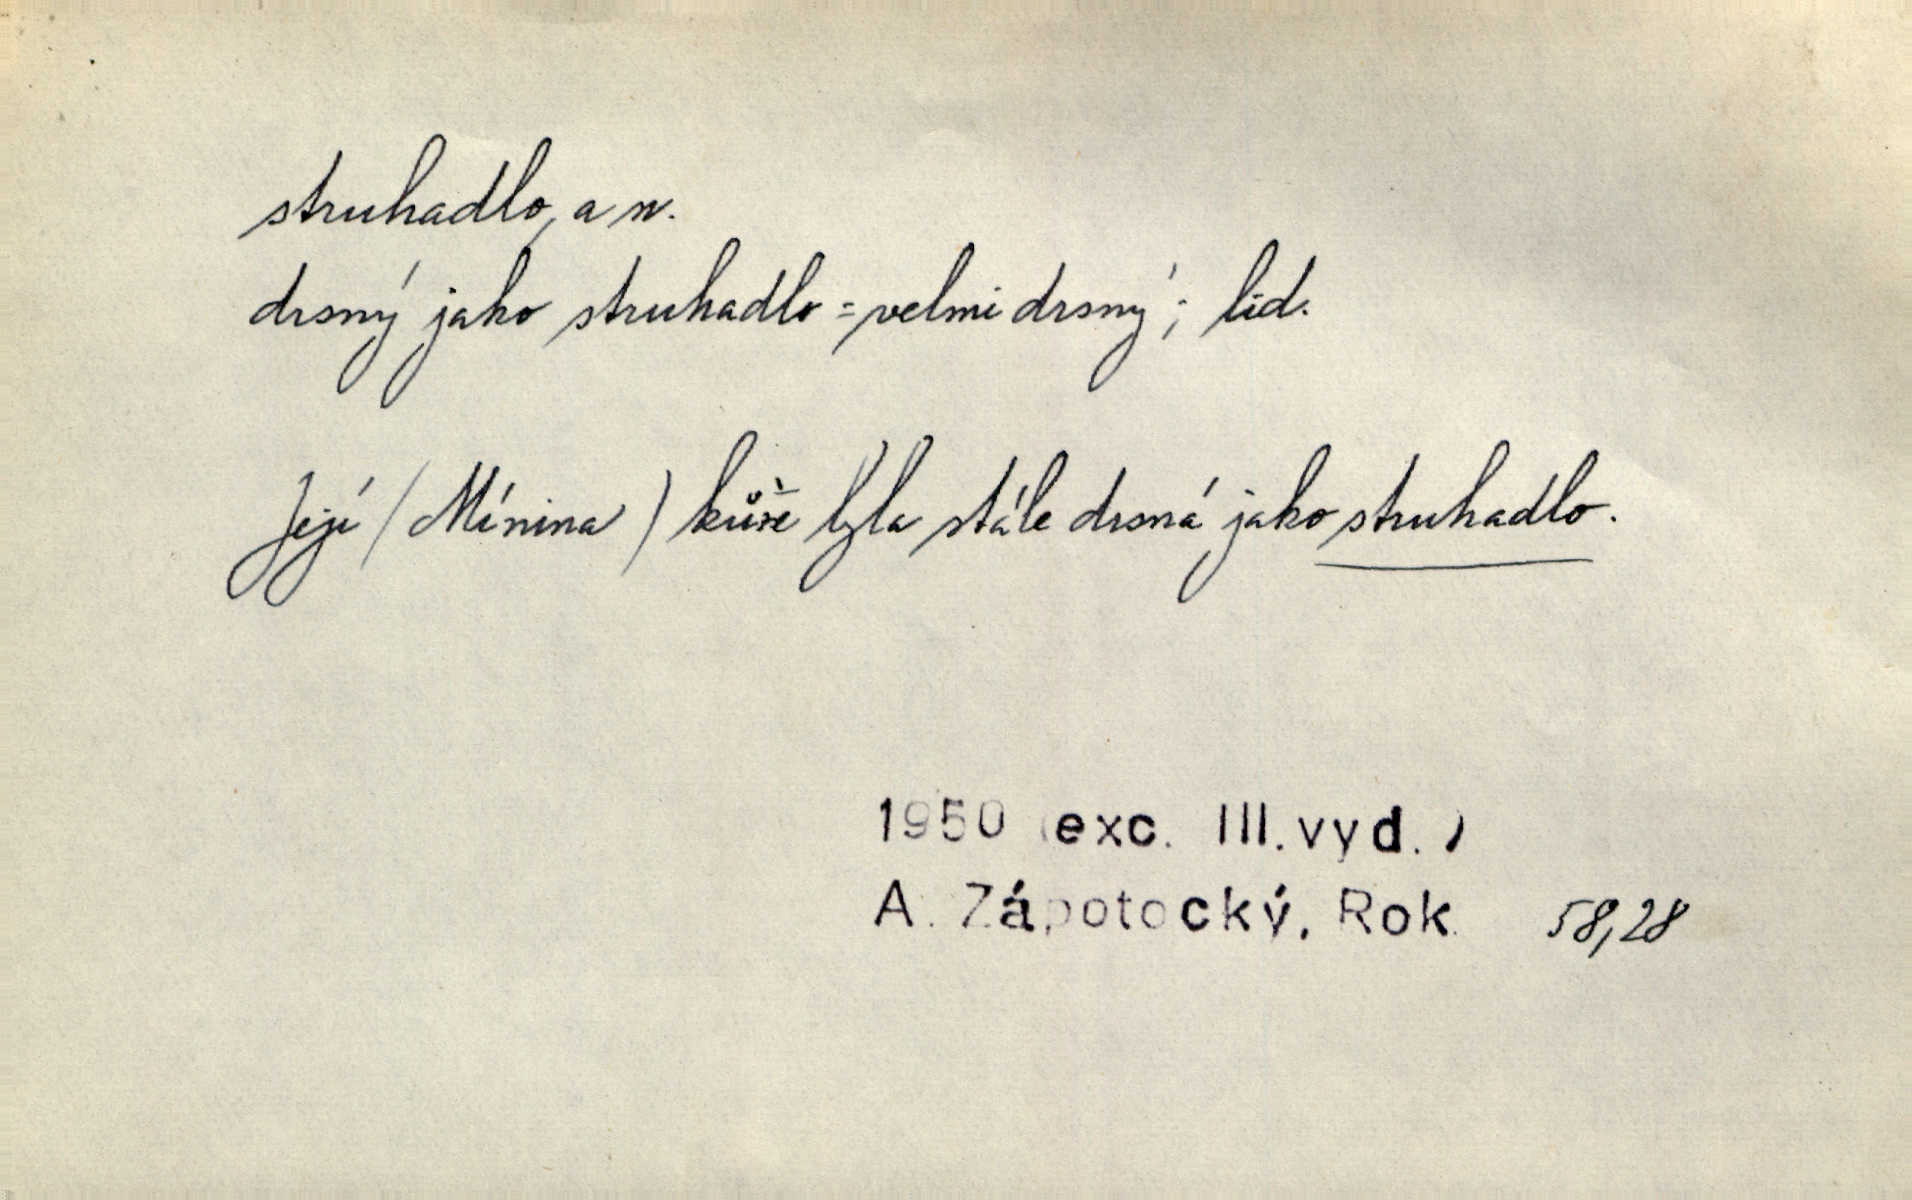 struhadlo, a n.
drsný jako struhadlo = velmi drsný; lid.
Její (Mínina) kůže byla stále drsná jako struhadlo.
1950 (exc. III. vyd.)
A. Zápotocký, Rok 58,28